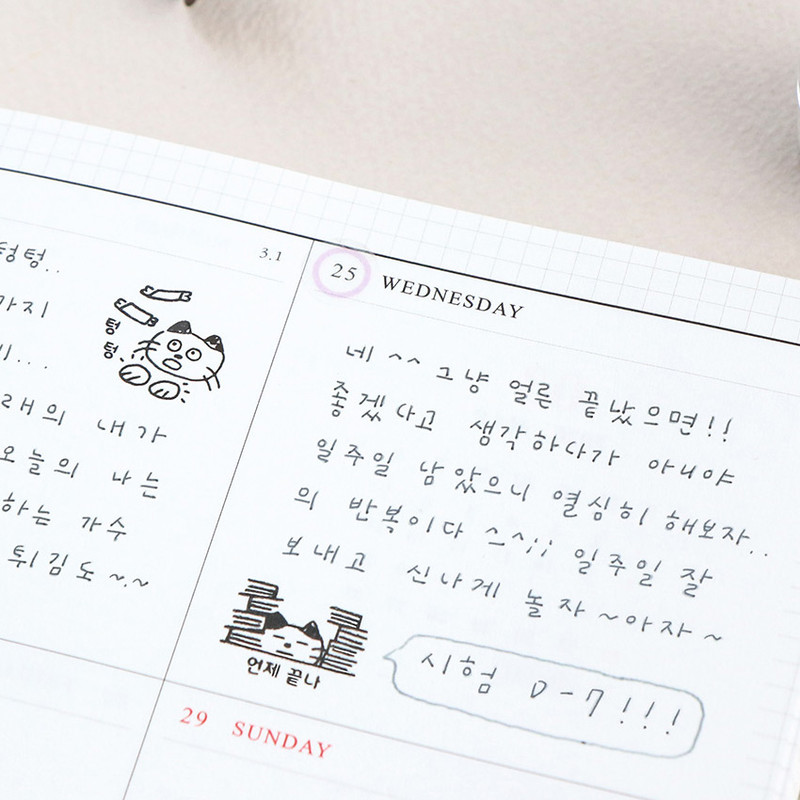 텅텅..
3.1
가지
텅
텅
래의 내가
오늘의 나는
하는 가수
튀김도 ~.~
25 WEDNESDAY
네 ^^ 그냥 얼른 끝났으면!!
좋겠다고 생각하다가 아니야
일주일 남았으니 열심히 해보자..
의 반복이다 ^_^;; 일주일 잘
보내고 신나게 놀자~아자~
언제 끝나
시험 D-7!!!
29 SUNDAY